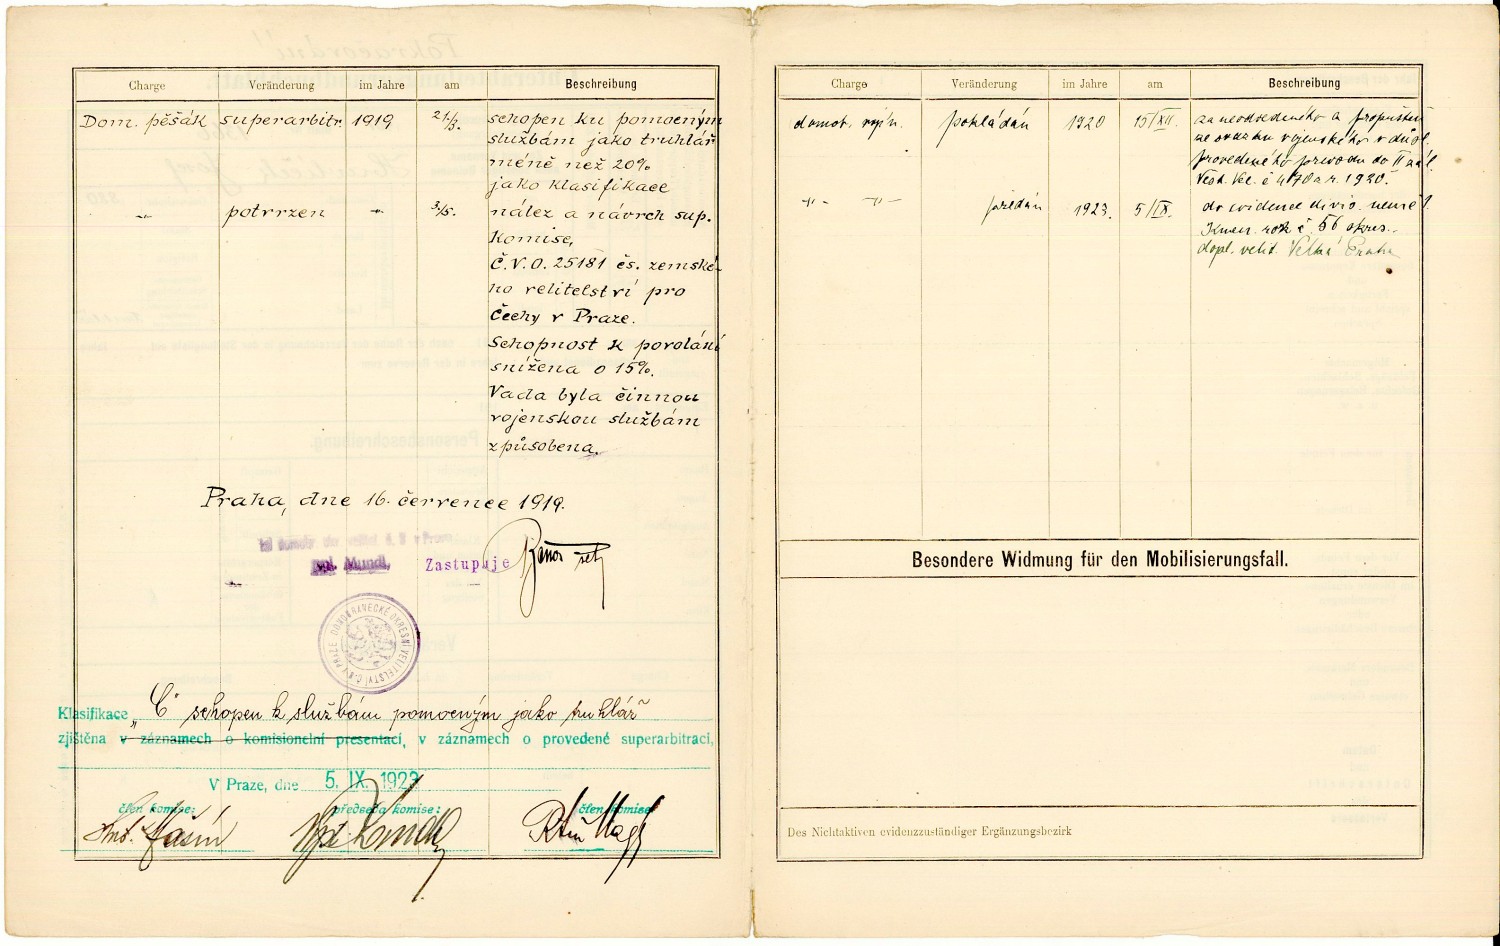 Charge Veränderung im Jahre am Beschreibung
Dom. pěšák superarbitr. 1919 21./3. schopen ku pomocným
službám jako truhlář
méně než 20%
jako klasifikace
-"- potvrzen -"- 3./5. nález a návrch sup.
komise,
Č.V.O. 25181 čs. zemské-
ho velitelství pro
Čechy v Praze.
Schopnost k povolání
snížena o 15%.
Vada byla činnou
vojenskou službám
způsobena.
Praha, dne 16. července 1919.
Mundl, Zastupuje
DOMOBRANECKÉ OKRESNÍ VELITELSTVÍ Č. 8 V PRAZE
Klasifikace „C" schopen k službám pomocným jako truhlář"
zjištěna v záznamech o komisionelní presentaci, v záznamech o provedené superarbitraci,
V Praze, dne 5. IX. 1923
člen komise: předseda komise: člen komise:
Charge Veränderung im Jahre am Beschreibung
domob. pokládán 1920 15/XII. za neodvedeného a propuštěn
ze svazku vojenského v důsl.
provedeného převodu do II zál.
Věst. Vel. č 470 z r. 1920.
-"- -"- 1923. 5/IX. do evidence
Kmen. rok č. 56 okres.
dopl. velit. Velká Praha
Besondere Widmung für den Mobilisierungsfall.
Des Nichtaktiven evidenzzuständiger Ergänzungsbezirk